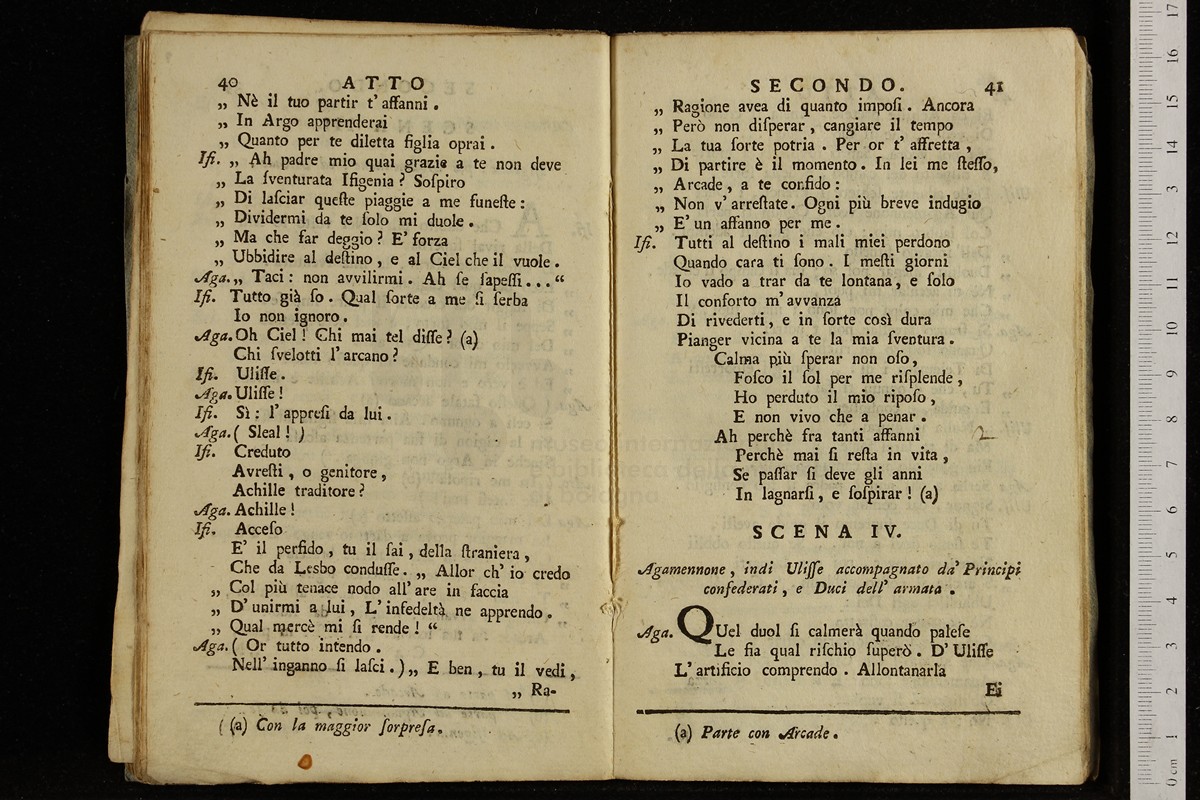 40 ATTO
„ Nè il tuo partir t' affanni .
„ In Argo apprenderai
„ Quanto per te diletta figlia oprai .
Ifi. „ Ah padre mio quai grazie a te non deve
„ La ſventurata Ifigenia ? Soſpiro
„ Di laſciar queſte piaggie a me funeſte :
„ Dividermi da te ſolo mi duole .
„ Ma che far deggio ? E' forza
„ Ubbidire al deſtino , e al Ciel che il vuole .
Aga. „ Taci : non avvilirmi . Ah ſe ſapeſſi . . . “
Ifi. Tutto già ſo . Qual ſorte a me ſi ſerba
Io non ignoro .
Aga. Oh Ciel ! Chi mai tel diſſe ? (a)
Chi ſvelotti l' arcano ?
Ifi. Uliſſe .
Aga. Uliſſe !
Ifi. Sì : l' appreſi da lui .
Aga. ( Sleal ! )
Ifi. Creduto
Avreſti , o genitore ,
Achille traditore ?
Aga. Achille !
Ifi. Acceſo
E' il perfido , tu il ſai , della ſtraniera ,
Che da Lesbo conduſſe . „ Allor ch' io credo
„ Col più tenace nodo all' are in faccia
„ D' unirmi a lui , L' infedeltà ne apprendo .
„ Qual mercè mi ſi rende ! “
Aga. ( Or tutto intendo .
Nell' inganno ſi laſci . ) „ E ben , tu il vedi ,
„ Ra-
(a) Con la maggior ſorpreſa .
SECONDO. 41
„ Ragione avea di quanto impoſi . Ancora
„ Però non diſperar , cangiare il tempo
„ La tua ſorte potria . Per or t' affretta ,
„ Di partire è il momento . In lei me ſteſſo ,
„ Arcade , a te confido :
„ Non v' arreſtate . Ogni più breve indugio
„ E' un affanno per me .
Ifi. Tutti al deſtino i mali miei perdono
Quando cara ti ſono . I meſti giorni
Io vado a trar da te lontana , e ſolo
Il conforto m' avvanza
Di rivederti , e in ſorte così dura
Pianger vicina a te la mia ſventura .
Calma più ſperar non oſo ,
Foſco il ſol per me riſplende ,
Ho perduto il mio ripoſo ,
E non vivo che a penar .
Ah perchè fra tanti affanni
Perchè mai ſi reſta in vita ,
Se paſſar ſi deve gli anni
In lagnarſi , e ſoſpirar ! (a)
SCENA IV.
Agamennone , indi Uliſſe accompagnato da' Principi
confederati , e Duci dell' armata .
Aga. QUel duol ſi calmerà quando paleſe
Le fia qual riſchio ſuperò . D' Uliſſe
L' artificio comprendo . Allontanarla
Ei
(a) Parte con Arcade .